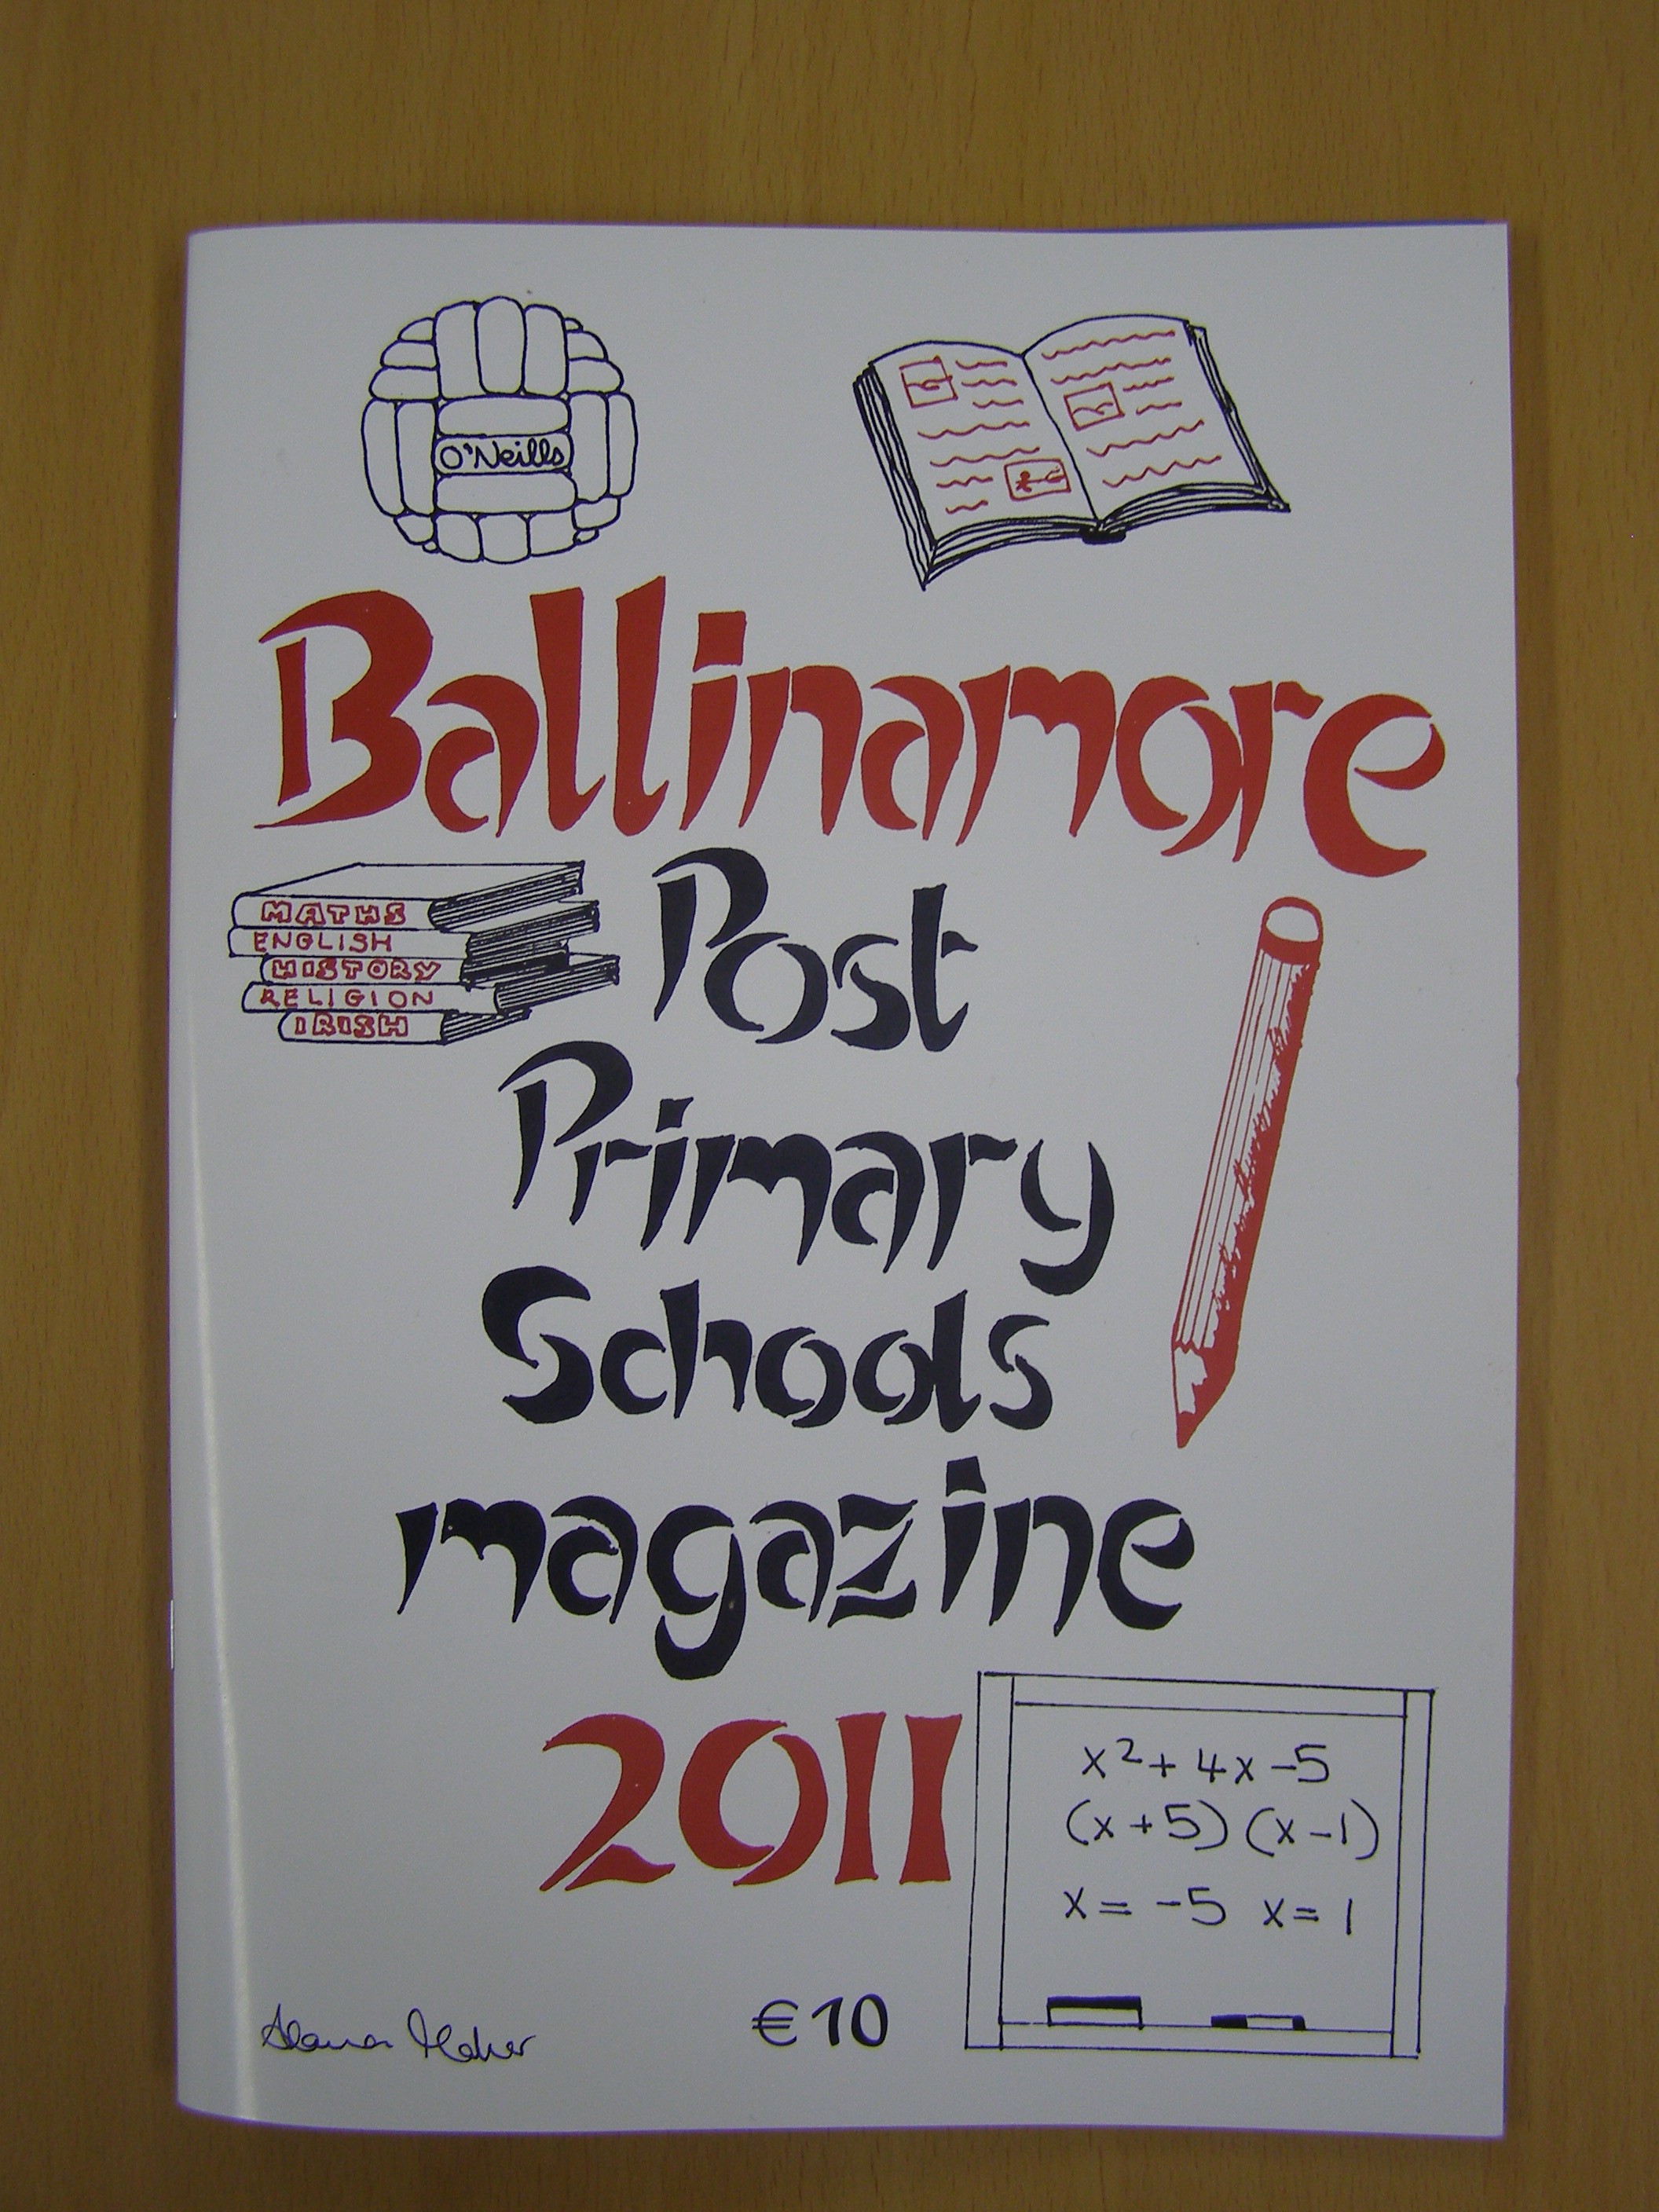 O'Neills
Ballinamore
MATHS
ENGLISH
HISTORY
RELIGION
IRISH
Post
Primary
Schools
magazine
2011
x²+4x-5
(x+5)(x-1)
x= -5 x= 1
€10